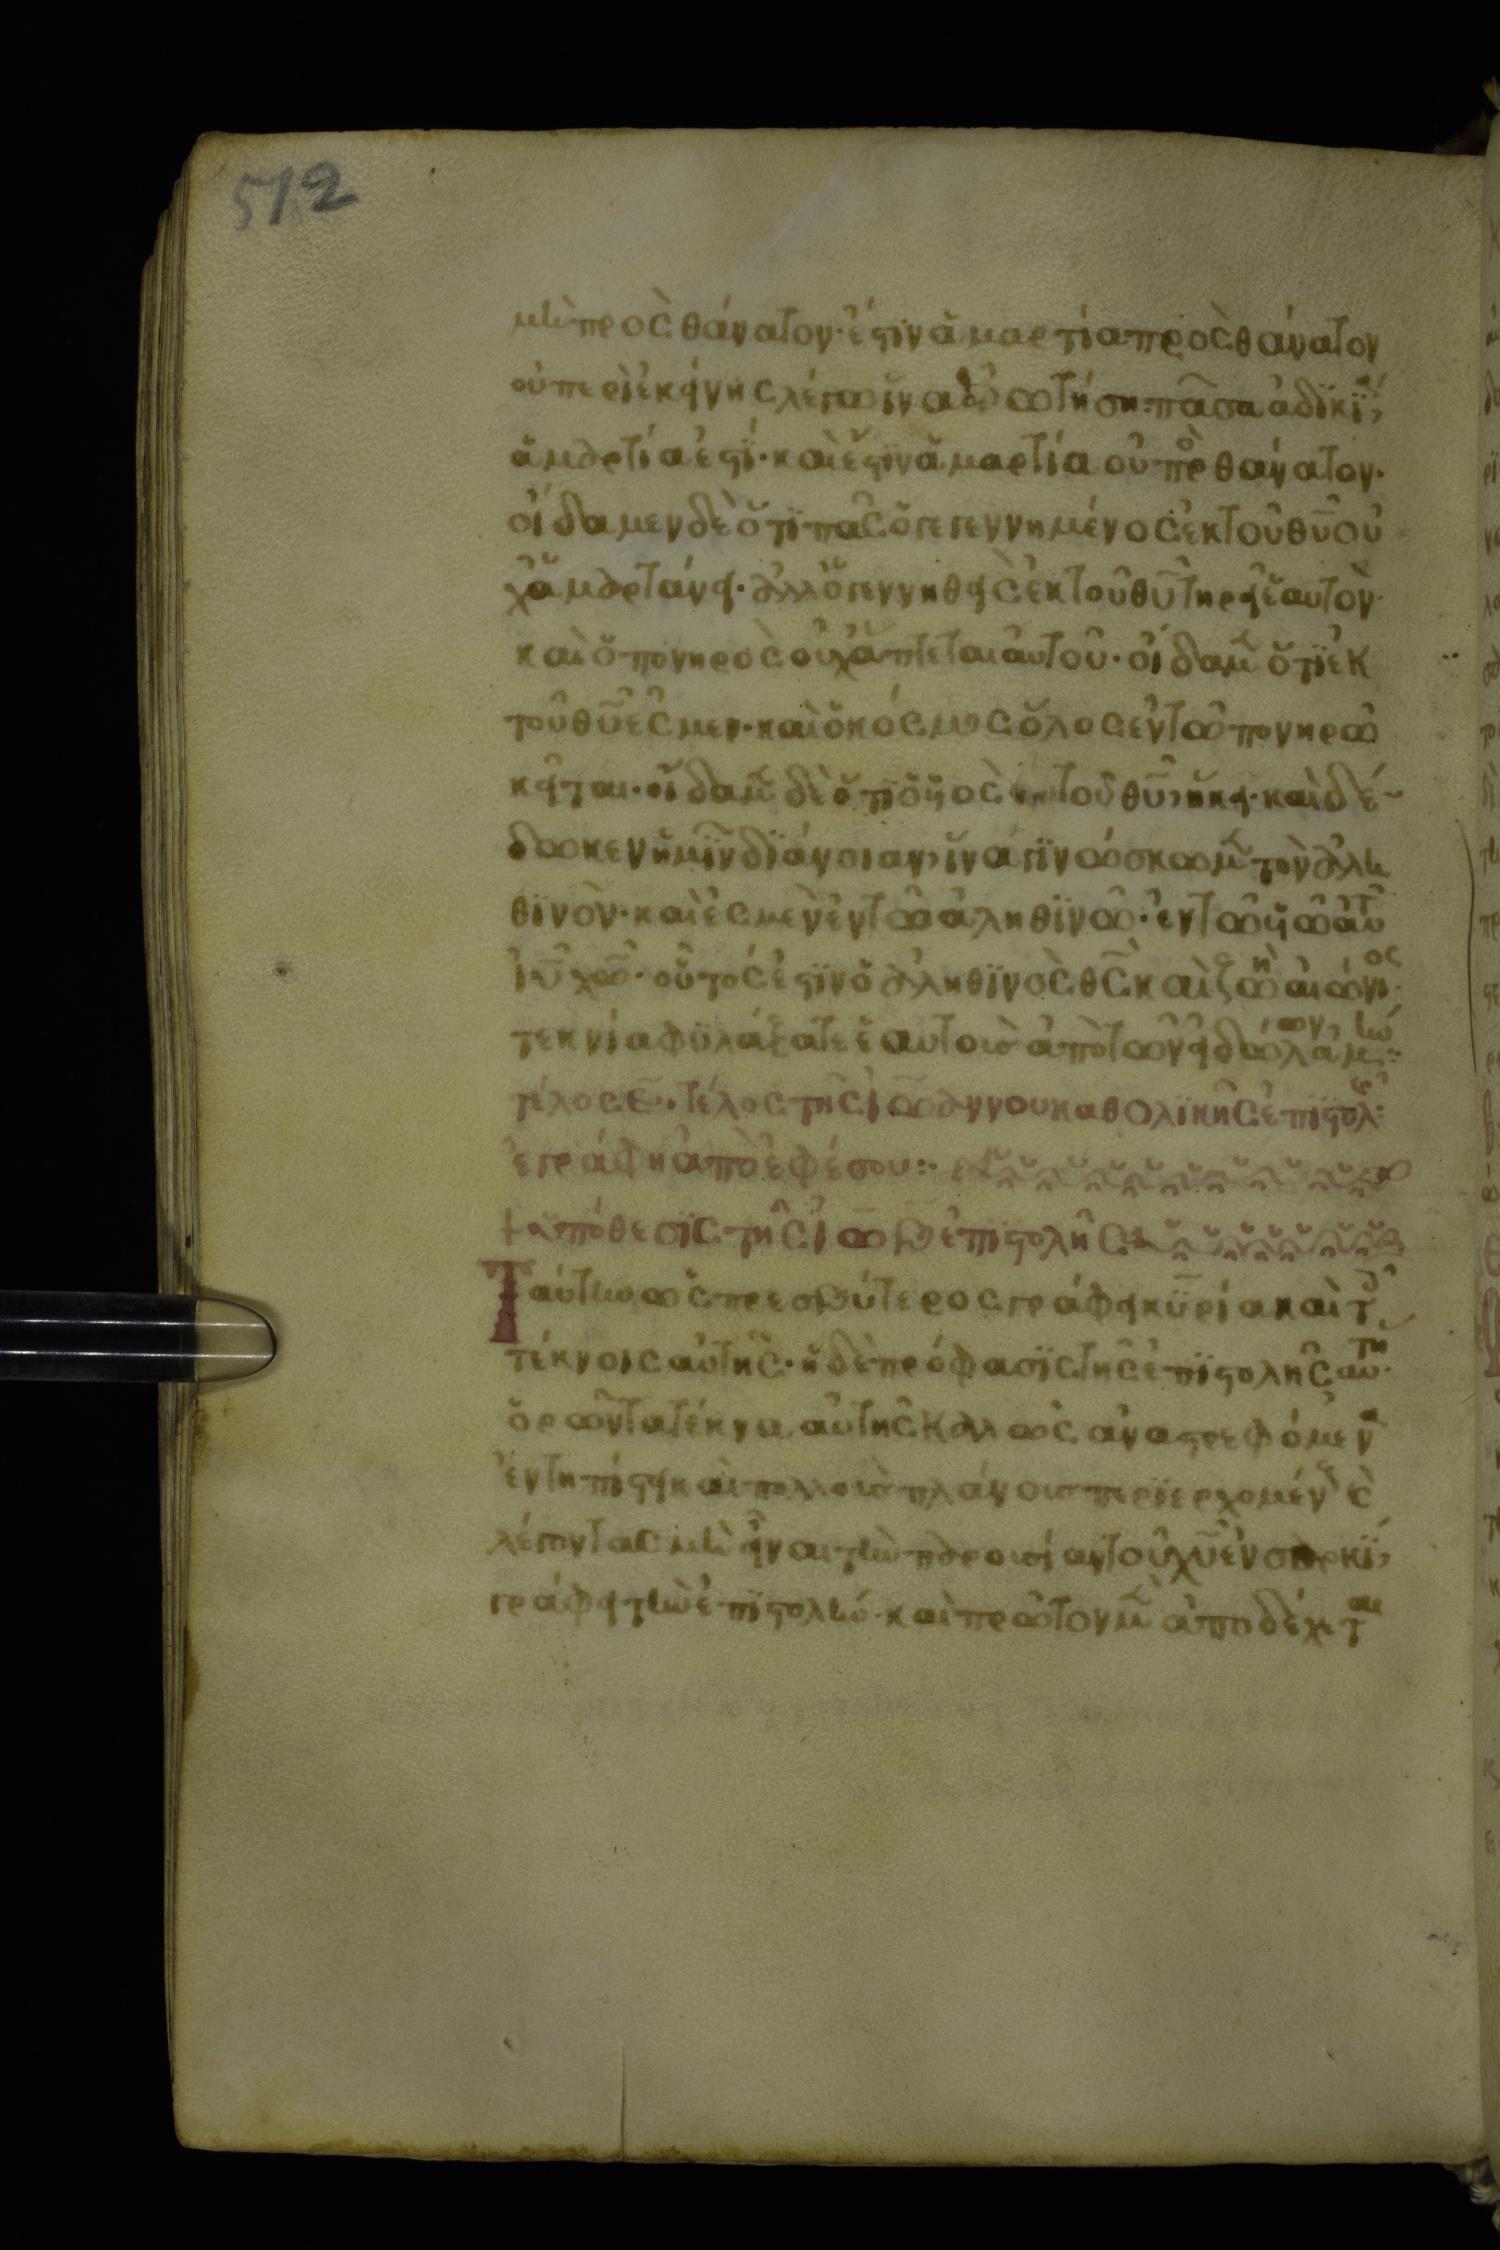 512
μὴ πρὸς θάνατον· ἔστιν ἁμαρτία πρὸς θάνατον
οὐ περὶ ἐκείνης λέγω ἵνα ἐρωτήση· πᾶσα ἀδικΐα,
ἁμαρτία ἐστί· καὶ ἔστιν ἁμαρτία οὐ πρὸς θάνατον·
οἴδαμεν δὲ ὅτι πᾶς ὁ γεγεννημένος ἐκ τοῦ θυ οὐ
χ ἁμαρτάνει· ἀλλ ὁ γεννηθεὶς ἐκ τοῦ θυ τηρεῖ ἑαυτὸν·
καὶ ὁ πονηρὸς οὐχ ἅπτεται αὐτοῦ· οἴδαμεν ὅτι ἐκ
τοῦ θυ ἐσμεν· καὶ ὁ κόσμος ὅλος ἐν τῶ πονηρῶ
κεῖται· οἴδαμεν δὲ ὅτι ὁ υἱὸς τοῦ θυ, ἥκει· καὶ δέ-
δωκεν ἡμῖν διάνοιαν, ἵνα γινώσκωμεν τὸν ἀλη
θινὸν· καὶ ἐσμὲν ἐν τῶ ἀληθινῶ· ἐν τῶ υἱῶ αὐτοῦ
ιυ χω· οὗτός ἐστιν ὁ ἀληθινὸς θς καὶ ζωὴ αἰώνιος·
τεκνία φυλάξατε ἑαυτοὺς ἀπὸ τῶν εἰδώλων, ἀμήν:
τέλος τέλος τῆς ἰωάννου καθολικῆς ἐπιστολῆς:
ἐγράφη ἀπὸ ἐφέσου:
+ ὑπόθεσις τῆς ἰω β ἐπιστολῆς
Ταύτην ὡς πρεσβύτερος γράφει κυρία καὶ τοῖς
τέκνοις αὐτῆς· ἡ δὲ πρόφασις τῆς ἐπιστολῆς αὕτη·
ὁρῶν τὰ τέκνα αὐτῆς καλῶς ἀναστρεφόμενα
ἐν τῆ πίστει καὶ πολλοὺς πλάνους περιερχομένους
λέγοντας μὴ εἶναι τὴν παρουσίαν τοῦ χυ ἐν σαρκί,
γράφει τὴν ἐπιστολήν· καὶ πρῶτον μὲν ἀποδέχεται